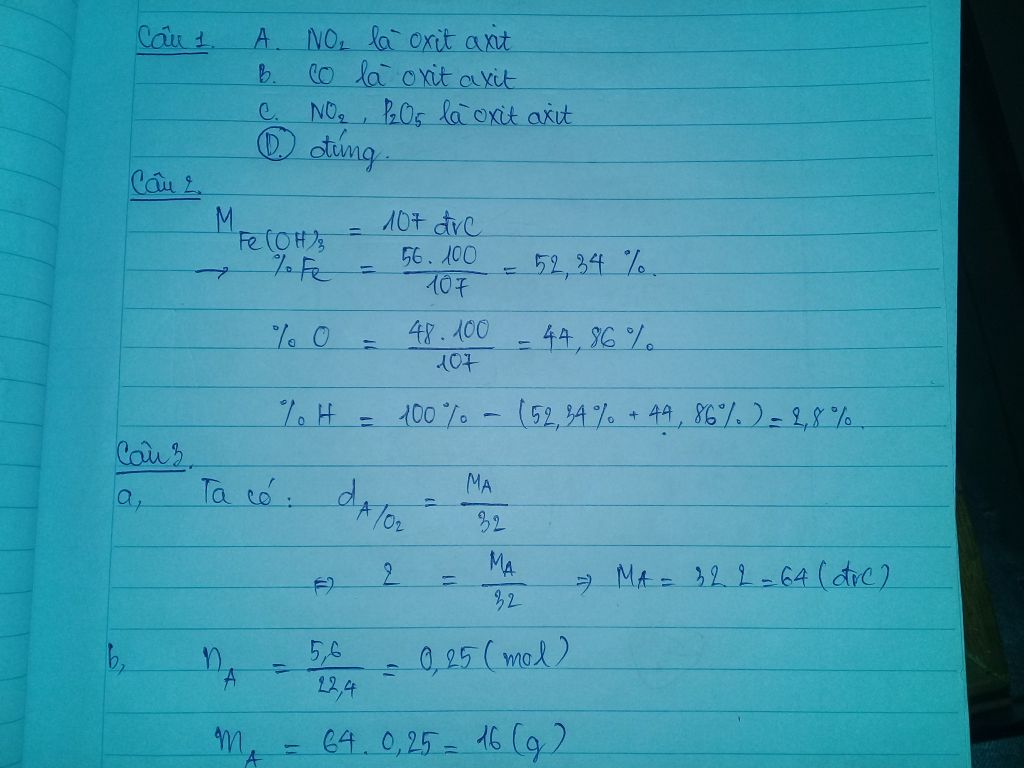 Câu 1. A. NO₂ là oxit axit
B. CO là oxit axit
C. NO₂, P₂O₅ là oxit axit
D. đúng.
Câu 2.
M Fe(OH)₃ = 107 đvC
→ % Fe = 56.100 / 107 = 52,34 %.
% O = 48.100 / 107 = 44,86 %
% H = 100% - (52,34% + 44,86%) = 2,8%.
Câu 3.
a, Ta có: d A/O₂ = MA / 32
⇒ 2 = MA / 32 ⇒ MA = 32 2 = 64 (đvC)
b, nA = 5,6 / 22,4 = 0,25 (mol)
mA = 64. 0,25 = 16 (g)